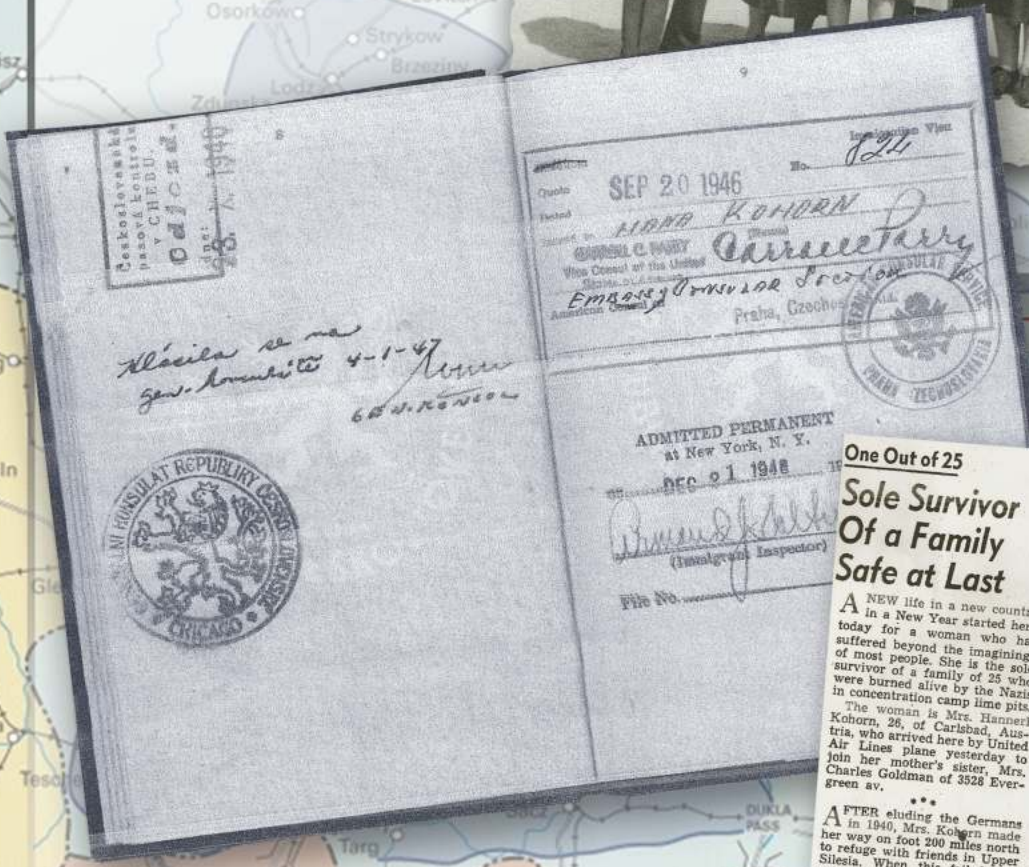 Osorkow
Strykow
Brzeziny
Lodz
8
Československá
pasová kontrola
v CHEBU.
Odjezd.
dne:
se na
4-1-47
GEN. KONSUL
GENERÁLNÍ KONSULÁT REPUBLIKY ČESKOSLOVENSKÉ
CHICAGO
9
Immigration Visa
No. 824
Quota
SEP 20 1946
Issued to HANA KOHORN
Vice Consul of the United
EMBASSY CONSULAR SECTION
American Consul at
Praha, Czechos
AMERICAN CONSULAR SERVICE
PRAHA CZECHOSLOVAKIA
ADMITTED PERMANENT
at New York, N. Y.
DEC 21 1946
(Immigrant Inspector)
File No.
One Out of 25
Sole Survivor
Of a Family
Safe at Last
A NEW life in a new count
in a New Year started her
today for a woman who ha
suffered beyond the imagining
of most people. She is the sol
survivor of a family of 25 who
were burned alive by the Nazis
in concentration camp lime pits.
The woman is Mrs. Hannerl
Kohorn, 26, of Carlsbad, Aus-
tria, who arrived here by United
Air Lines plane yesterday to
join her mother's sister, Mrs.
Charles Goldman of 3528 Ever-
green av.
AFTER eluding the Germans
in 1940, Mrs. Kohorn made
her way on foot 200 miles north
to refuge with friends in Upper
Silesia. When
DUKLA
PASS
Targ